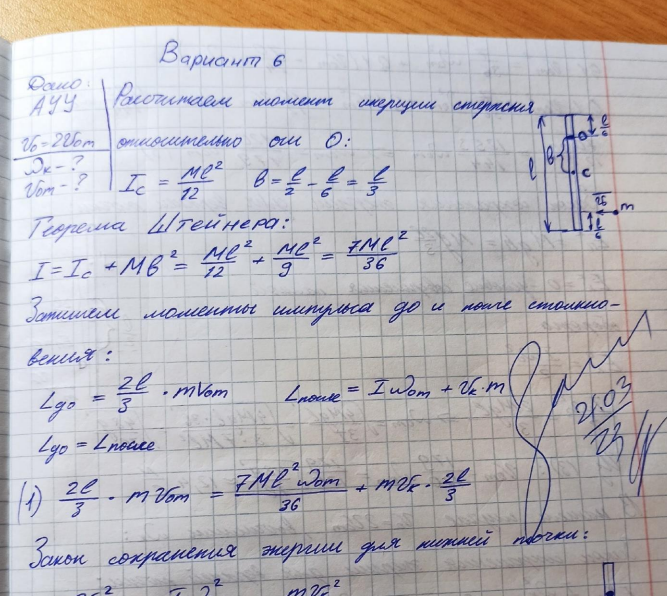 Вариант 6
Дано:
АУУ
v₀ = 2v₀т
ω_к - ?
v₀т - ?
Рассчитаем момент инерции стержня
относительно оси О:
I_c = Ml²/12   b = l/2 - l/6 = l/3
Теорема Штейнера:
I = I_c + Mb² = Ml²/12 + Ml²/9 = 7Ml²/36
Запишем моменты импульса до и после столкно-
вения:
L_до = 2l/3 · mv₀т   L_после = Iω₀т + v_к · m
L_до = L_после
(1) 2l/3 · mv₀т = 7Ml²ω₀т/36 + mv_к · 2l/3
Закон сохранения энергии для нижней точки:
l/6
О
b
l
С
m
l/6
21.03
23